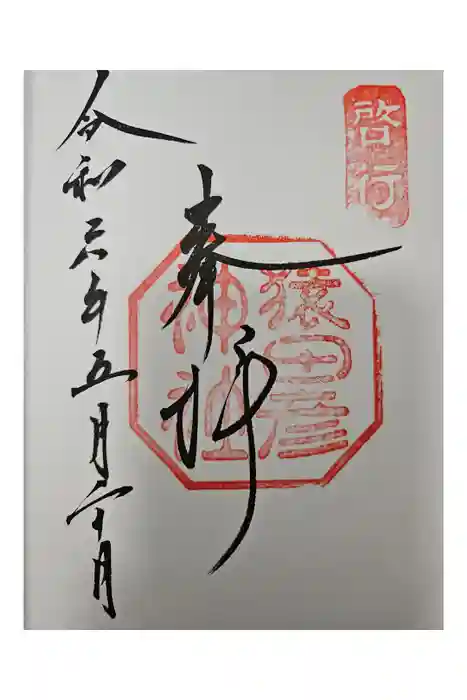 啓行
奉拝
猿田彦
神社
令和六年五月二十日